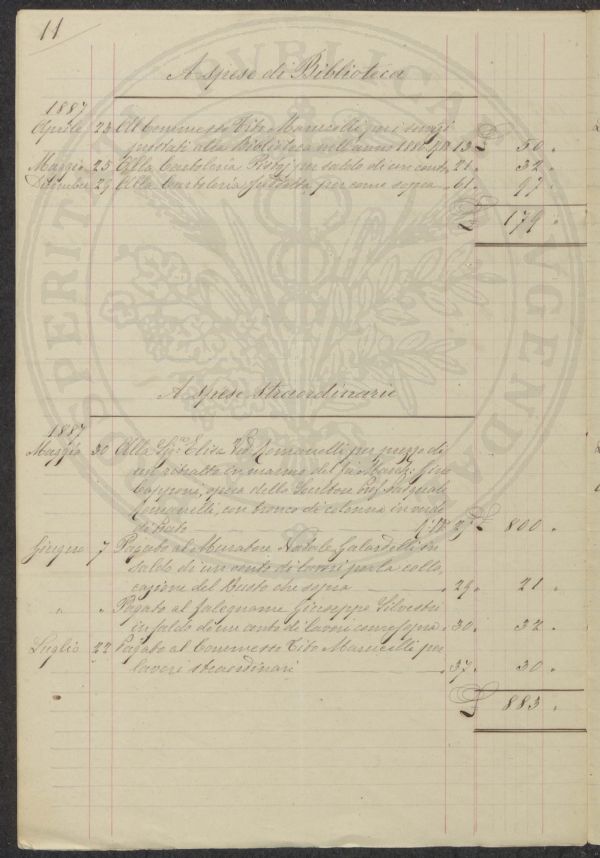 11
A spese di Biblioteca
1887
Aprile 23 Al Commesso Tito Marucelli per i servizi
prestati alla Biblioteca nell'anno 13 £ 50 "
Maggio 25 Alla Cartoleria per saldo di un conto " 21 " 32 "
Dicembre 29 Alla Cartoleria per come sopra " 61 " 97 "
£ 179 "
A spese straordinarie
1887
Maggio 30 Alla Sig.ra Elisa Ved. Romanelli per prezzo di
un ritratto in marmo del fu March: Gino
Capponi, opera dello Scultore Prof. Pasquale
Romanelli, con tronco di colonna in verde
di Prato £ 800 "
Giugno 7 Pagato al Muratore Natale Galardelli in
saldo di un conto di lavori per la collo
cazione del Busto che sopra " 29 " 21 "
" " Pagato al falegname Giuseppe Silvestri
in saldo di un conto di lavori come sopra " 30 " 32 "
Luglio 22 Pagato al Commesso Tito Marucelli per
lavori straordinari " 37 " 30 "
£ 883 "
PROSPERITATI PUBLICAE AUGENDAE